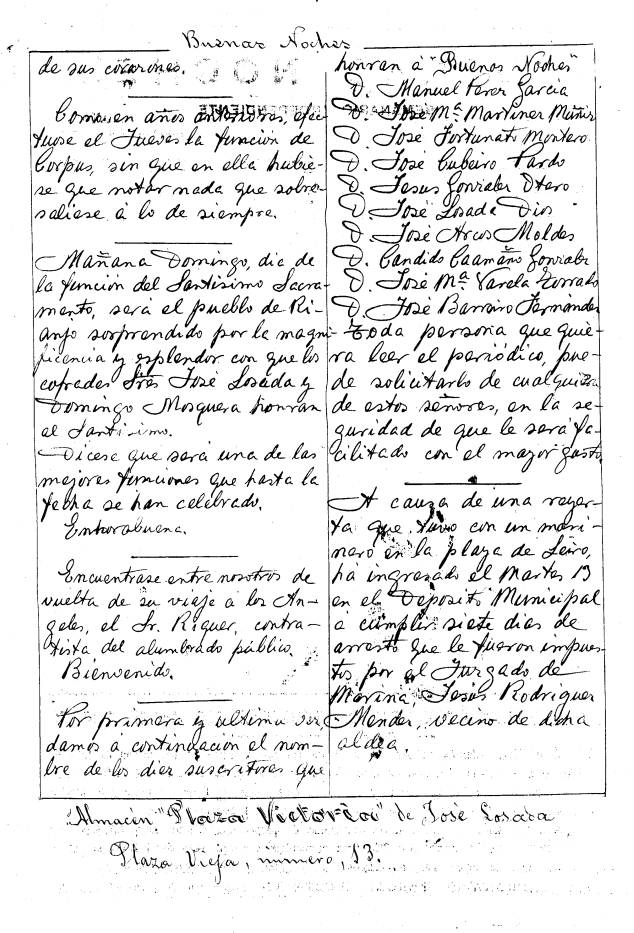 Buenas Noches
de sus corazones.
Como en años anteriores, efec-
tuose el Jueves la función de
Corpus, sin que en ella hubie-
se que notar nada que sobre-
saliese á lo de siempre.
Mañana Domingo, dia de
la función del Santísimo Sacra-
mento, será el pueblo de Ri-
anjo sorprendido por la magni-
ficencia y esplendor con que los
cofrades Sres José Losada y
Domingo Mosquera honran
al Santísimo.
Dicese que será una de las
mejores funciones que hasta la
fecha se han celebrado.
Enhorabuena.
Encuentrase entre nosotros de
vuelta de su viaje á los An-
geles, el Sr. Riquer, contra-
tista del alumbrado público.
Bienvenido.
Por primera y ultima vez
damos á continuación el nom-
bre de los diez suscritores que
honran á "Buenas Noches"
D. Manuel Perez Garcia
D. José Mª Martinez Muñiz
D. José Fortunato Montero
D. José Cubeiro Pardo
D. Jesus Gonzalez Otero
D. José Losada Dios
D. José Arcos Moldes
D. Candido Caamaño Gonzalez
D. José Mª Varela Torrado
D. José Barreiro Fernández
Toda persona que quie-
ra leer el periódico, pue-
de solicitarlo de cualquiera
de estos señores, en la se-
guridad de que le será fa-
cilitado con el mayor gusto.
A causa de una reyer-
ta que tuvo con un mari-
nero en la playa de Leiro,
há ingresado el Martes 13
en el Deposito Municipal
á cumplir siete dias de
arresto que le fueron impues-
tos por el Juzgado de
Marina, Jesús Rodriguez
Mendez, vecino de dicha
aldea.
Almacén "Plaza Victoria" de José Losada
Plaza Vieja, número, 13.